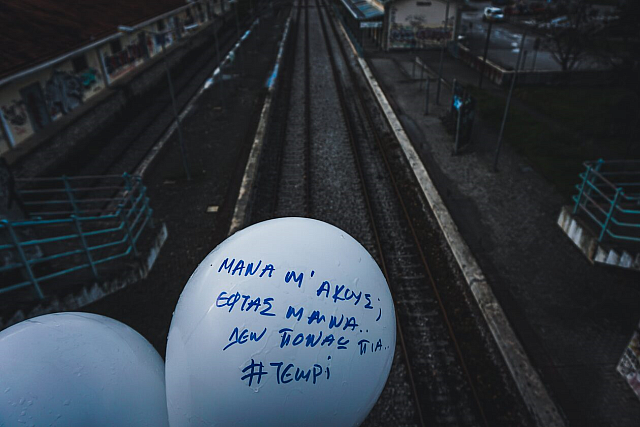 ΜΑΝΑ Μ' ΑΚΟΥΣ;
ΕΦΤΑΣ ΜΑΝΑ..
ΔΕΝ ΠΟΝΑΣ ΠΙΑ..
#Τεμπι